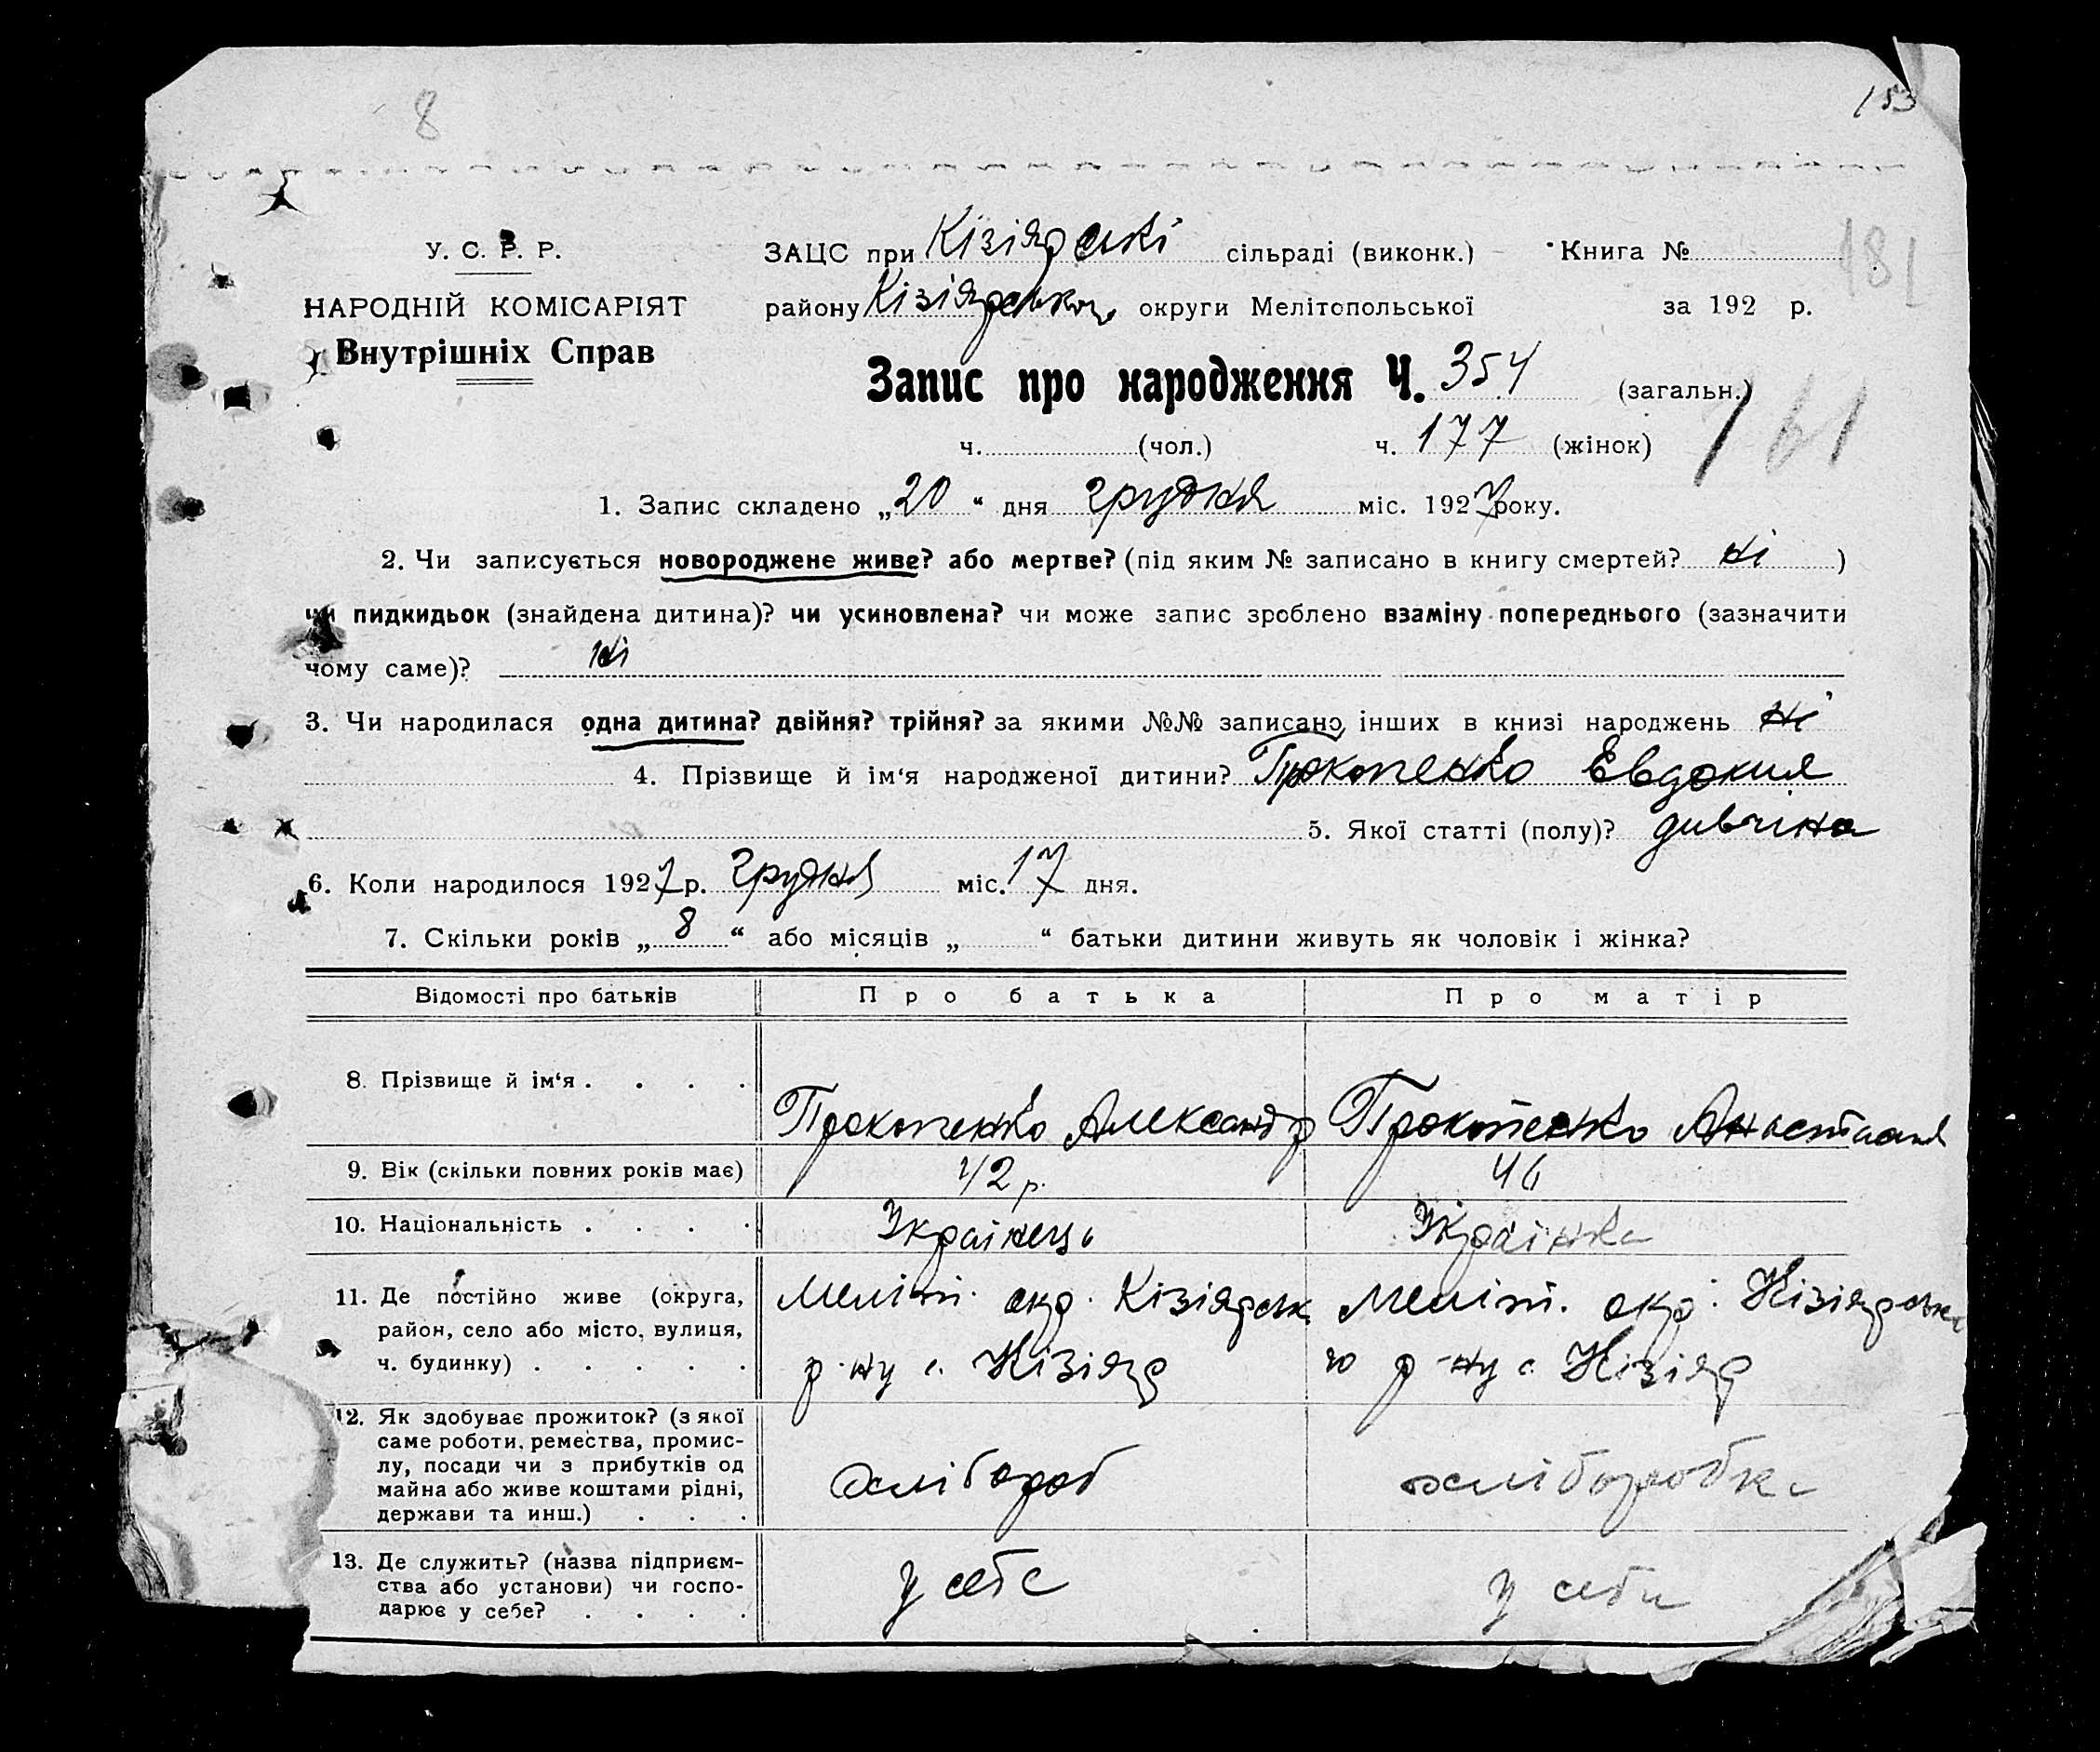 8
153
У. С. Р. Р.
НАРОДНІЙ КОМІСАРІЯТ
Внутрішніх Справ
ЗАЦС при Кізіярські сільраді (виконк.) Книга №
181
району Кізіярськог округи Мелітопольської за 192 р.
Запис про народження Ч. 354 (загальн.)
161
ч. (чол.) ч. 177 (жінок)
1. Запис складено „20“ дня грудня міс. 1927 року.
2. Чи записується новороджене живе? або мертве? (під яким № записано в книгу смертей? ні )
чи пидкидьок (знайдена дитина)? чи усиновлена? чи може запис зроблено взаміну попереднього (зазначити
чому саме)? ні
3. Чи народилася одна дитина? двійня? трійня? за якими №№ записано інших в книзі народжень ні
4. Прізвище й ім‘я народженої дитини? Прокопенко Евдокия
5. Якої статті (полу)? дивчіна
6. Коли народилося 1927 р. грудня міс. 17 дня.
7. Скільки років „ 8 “ або місяців „ “ батьки дитини живуть як чоловік і жінка?
Відомості про батьків Про батька Про матір
8. Прізвище й ім‘я . . . . Прокопенко Александр Прокопенко Анастасия
9. Вік (скільки повних років має) 42 р. 46
10. Національність . . . . Українець Українка
11. Де постійно живе (округа, Меліт. окр. Кізіярськ Меліт. окр. Кізіярсько
район, село або місто, вулиця, го р-ну с. Кізіяр
ч. будинку) . . . . . р-ну с. Кізіяр
12. Як здобуває прожиток? (з якої
саме роботи, ремества, промис-
лу, посади чи з прибутків од хлібороб хліборобка
майна або живе коштами рідні,
держави та инш.) . . .
13. Де служить? (назва підприєм-
ства або установи) чи госпо- у себе у себи
дарює у себе? . . . .